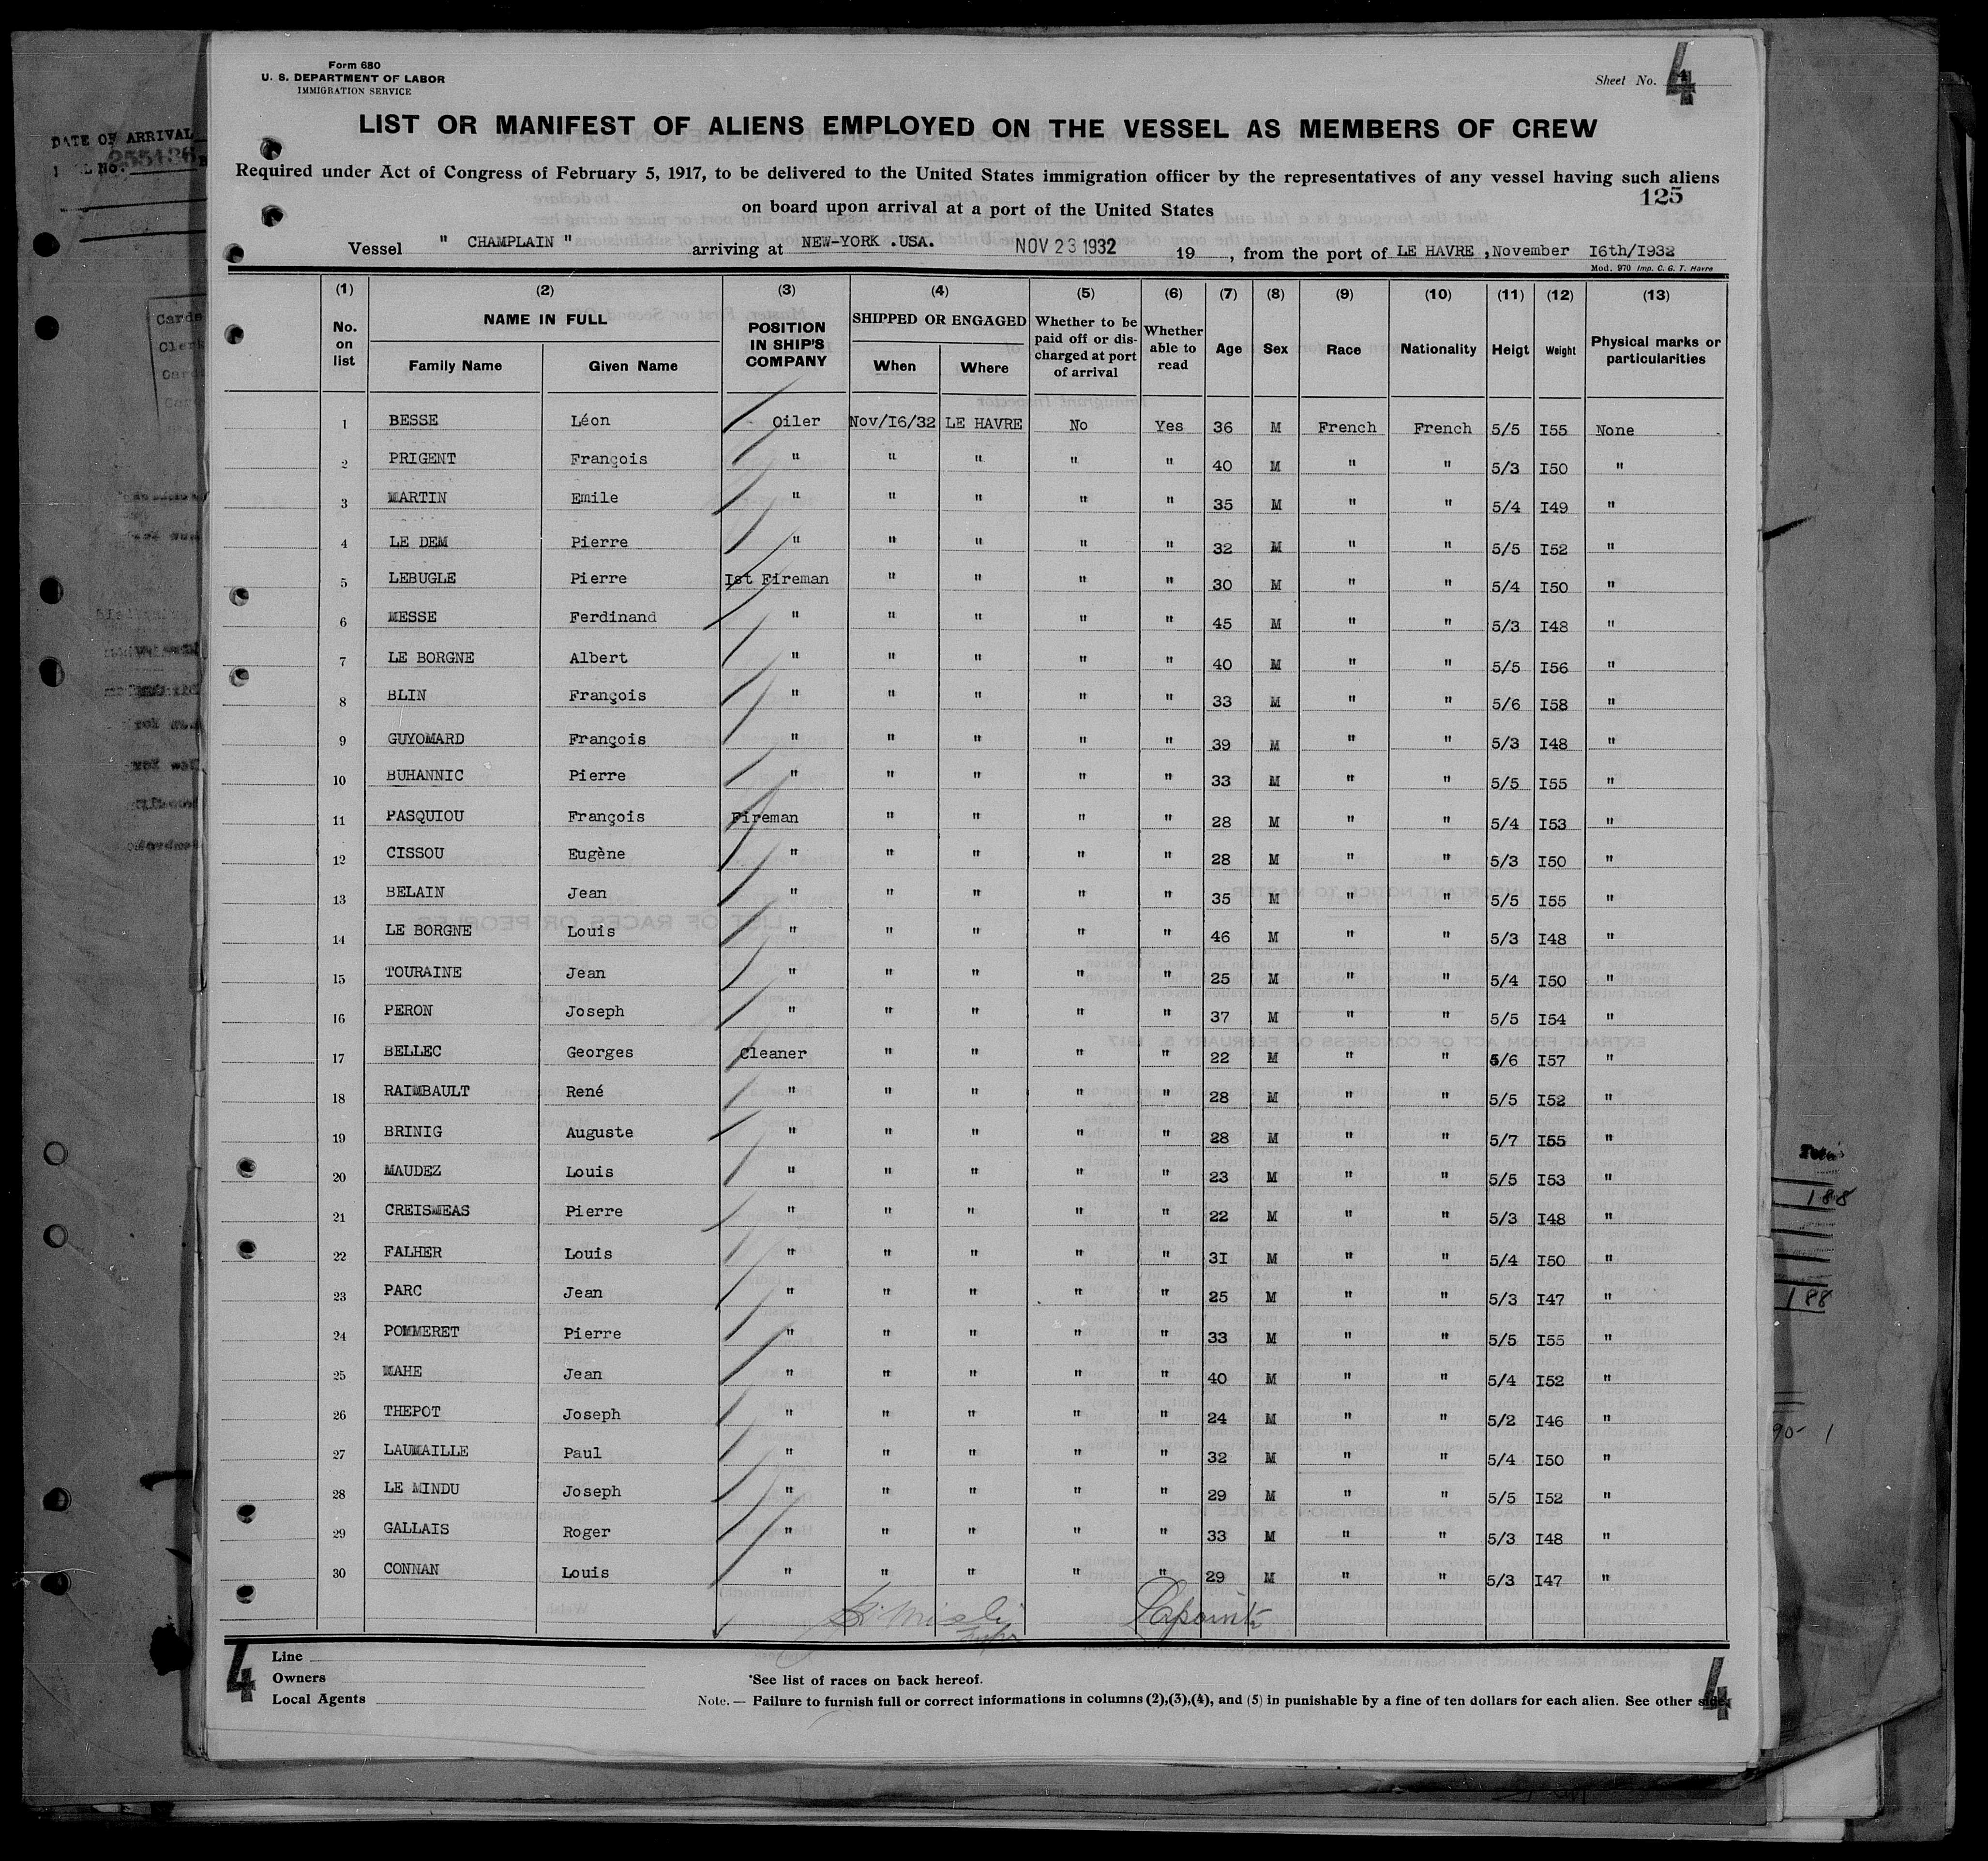 Form 680
U. S. DEPARTMENT OF LABOR
IMMIGRATION SERVICE
Sheet No. 4
DATE OF ARRIVAL
LIST OR MANIFEST OF ALIENS EMPLOYED ON THE VESSEL AS MEMBERS OF CREW
Required under Act of Congress of February 5, 1917, to be delivered to the United States immigration officer by the representatives of any vessel having such aliens
on board upon arrival at a port of the United States
125
Vessel " CHAMPLAIN " arriving at NEW-YORK .USA. NOV 23 1932 19 , from the port of LE HAVRE ,November I6th/I932
Mod. 970 Imp. C. G. T. Havre
(1) (2) (3) (4) (5) (6) (7) (8) (9) (10) (11) (12) (13)
No. on list NAME IN FULL Family Name Given Name POSITION IN SHIP'S COMPANY SHIPPED OR ENGAGED When Where Whether to be paid off or discharged at port of arrival Whether able to read Age Sex Race Nationality Heigt Weight Physical marks or particularities
1 BESSE Léon Oiler Nov/I6/32 LE HAVRE No Yes 36 M French French 5/5 I55 None
2 PRIGENT François " " " " " 40 M " " 5/3 I50 "
3 MARTIN Emile " " " " " 35 M " " 5/4 I49 "
4 LE DEM Pierre " " " " " 32 M " " 5/5 I52 "
5 LEBUGLE Pierre Ist Fireman " " " " 30 M " " 5/4 I50 "
6 MESSE Ferdinand " " " " " 45 M " " 5/3 I48 "
7 LE BORGNE Albert " " " " " 40 M " " 5/5 I56 "
8 BLIN François " " " " " 33 M " " 5/6 I58 "
9 GUYOMARD François " " " " " 39 M " " 5/3 I48 "
10 BUHANNIC Pierre " " " " " 33 M " " 5/5 I55 "
11 PASQUIOU François Fireman " " " " 28 M " " 5/4 I53 "
12 CISSOU Eugène " " " " " 28 M " " 5/3 I50 "
13 BELAIN Jean " " " " " 35 M " " 5/5 I55 "
14 LE BORGNE Louis " " " " " 46 M " " 5/3 I48 "
15 TOURAINE Jean " " " " " 25 M " " 5/4 I50 "
16 PERON Joseph " " " " " 37 M " " 5/5 I54 "
17 BELLEC Georges Cleaner " " " " 22 M " " 5/6 I57 "
18 RAIMBAULT René " " " " " 28 M " " 5/5 I52 "
19 BRINIG Auguste " " " " " 28 M " " 5/7 I55 "
20 MAUDEZ Louis " " " " " 23 M " " 5/5 I53 "
21 CREISMEAS Pierre " " " " " 22 M " " 5/3 I48 "
22 FALHER Louis " " " " " 3I M " " 5/4 I50 "
23 PARC Jean " " " " " 25 M " " 5/3 I47 "
24 POMMERET Pierre " " " " " 33 M " " 5/5 I55 "
25 MAHE Jean " " " " " 40 M " " 5/4 I52 "
26 THEPOT Joseph " " " " " 24 M " " 5/2 I46 "
27 LAUMAILLE Paul " " " " " 32 M " " 5/4 I50 "
28 LE MINDU Joseph " " " " " 29 M " " 5/5 I52 "
29 GALLAIS Roger " " " " " 33 M " " 5/3 I48 "
30 CONNAN Louis " " " " " 29 M " " 5/3 I47 "
188
188
4
Line
Owners
Local Agents
*See list of races on back hereof.
Note. — Failure to furnish full or correct informations in columns (2),(3),(4), and (5) in punishable by a fine of ten dollars for each alien. See other side.
4